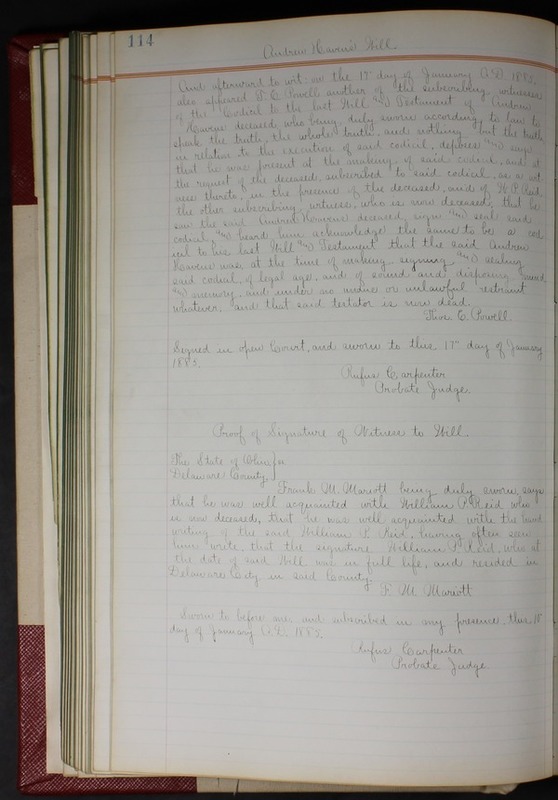 114
Andrew Havens' Will.
And afterward to wit: on the 17" day of January A.D. 1885,
also appeared T. E. Powell another of the subscribing witnesses
of the Codicil to the last Will and Testament of Andrew
Havens deceased, who being duly sworn according to law to
speak the truth, the whole truth, and nothing but the truth
in relation to the execution of said codicil, deposes and says
that he was present at the making of said codicil, and at
the request of the deceased, subscribed to said codicil, as a wit
ness thereto, in the presence of the deceased, and of W. P. Reid,
the other subscribing witness, who is now deceased, that he
saw the said Andrew Havens deceased sign and seal said
codicil, and heard him acknowledge the same to be a cod
icil to his last Will and Testament that the said Andrew
Havens was at the time of making, signing and sealing
said codicil, of legal age, and of sound and disposing mind
and memory, and under no undue or unlawful restraint
whatever, and that said testator is now dead.
Thos. E. Powell
Signed in open Court, and sworn to this 17" day of January
1885.
Rufus Carpenter
Probate Judge.
Proof of Signature of Witness to Will.
The State of Ohio } ss
Delaware County }
Frank M. Mariott being duly sworn, says
that he was well acquainted with William P. Reid who
is now deceased, that he was well acquainted with the hand
writing of the said William P. Reid, having often seen
him write, that the signature William P. Reid, who at
the date of said Will was in full life, and resided in
Delaware City in said County.
F. M. Mariott
Sworn to before me and subscribed in my presence, this
day of January A.D. 1885.
Rufus Carpenter
Probate Judge